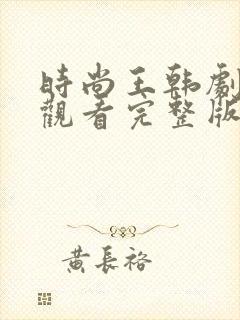 時尚王韩劇
觀看完整版
黄長裕